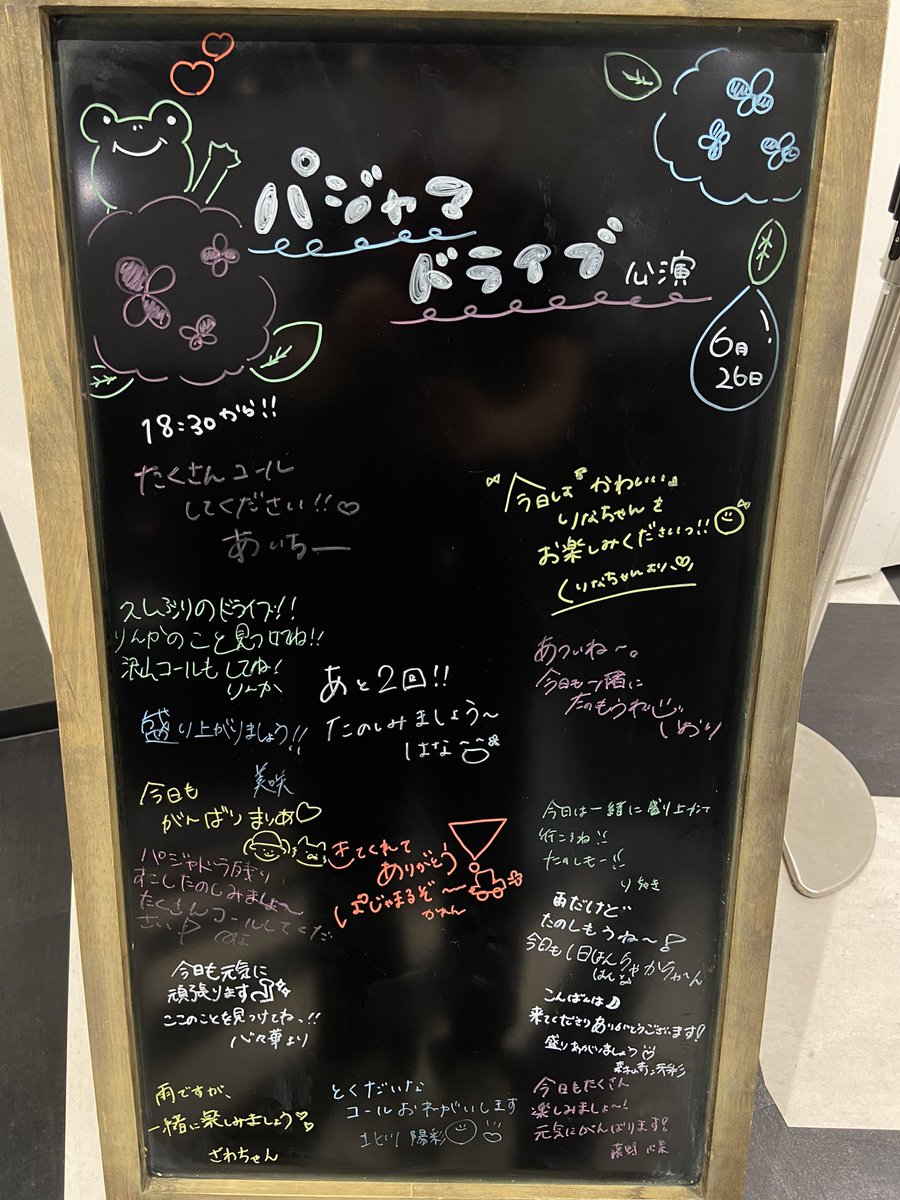 パジャマ
ドライブ 公演
6月
26日
18:30から!!
たくさんコール
してください!!♡
あいちー
今日しも かわいい
りなちゃんを
お楽しみくださいっ!!
りなちゃんより♡
久しぶりのドライブ!!
りんかのこと見つけてね!!
沢山コールもしてね!
りんか
あと2回!!
たのしみましょう〜
はな
あついね〜。
今日も一緒に
たのもうね
しおり
盛り上がりましょう!!
美咲
今日も
がんばりまりあ♡
きてくれて
ありがとう
ぱじゃまるぞ〜
かれん
今日は一緒に盛り上がって
行こうね!!
たのしもー!!
パジャドラ残り
すこしたのしみましょ〜
たくさんコールしてくだ
さい
雨だけど
たのしもうね〜♪
今日も1日はんちゃかちゃ〜ん
はんな
今日も元気に
頑張ります
ここのことを見つけてねっ!!
心々華より
こんばんは
来てくださりありがとうございます!
盛りあがりましょう
雨ですが、
一緒に楽しみましょう
ざわちゃん
とくだいな
コールおねがいします
陽彩
今日もたくさん
楽しみましょ〜!
元気にがんばります!